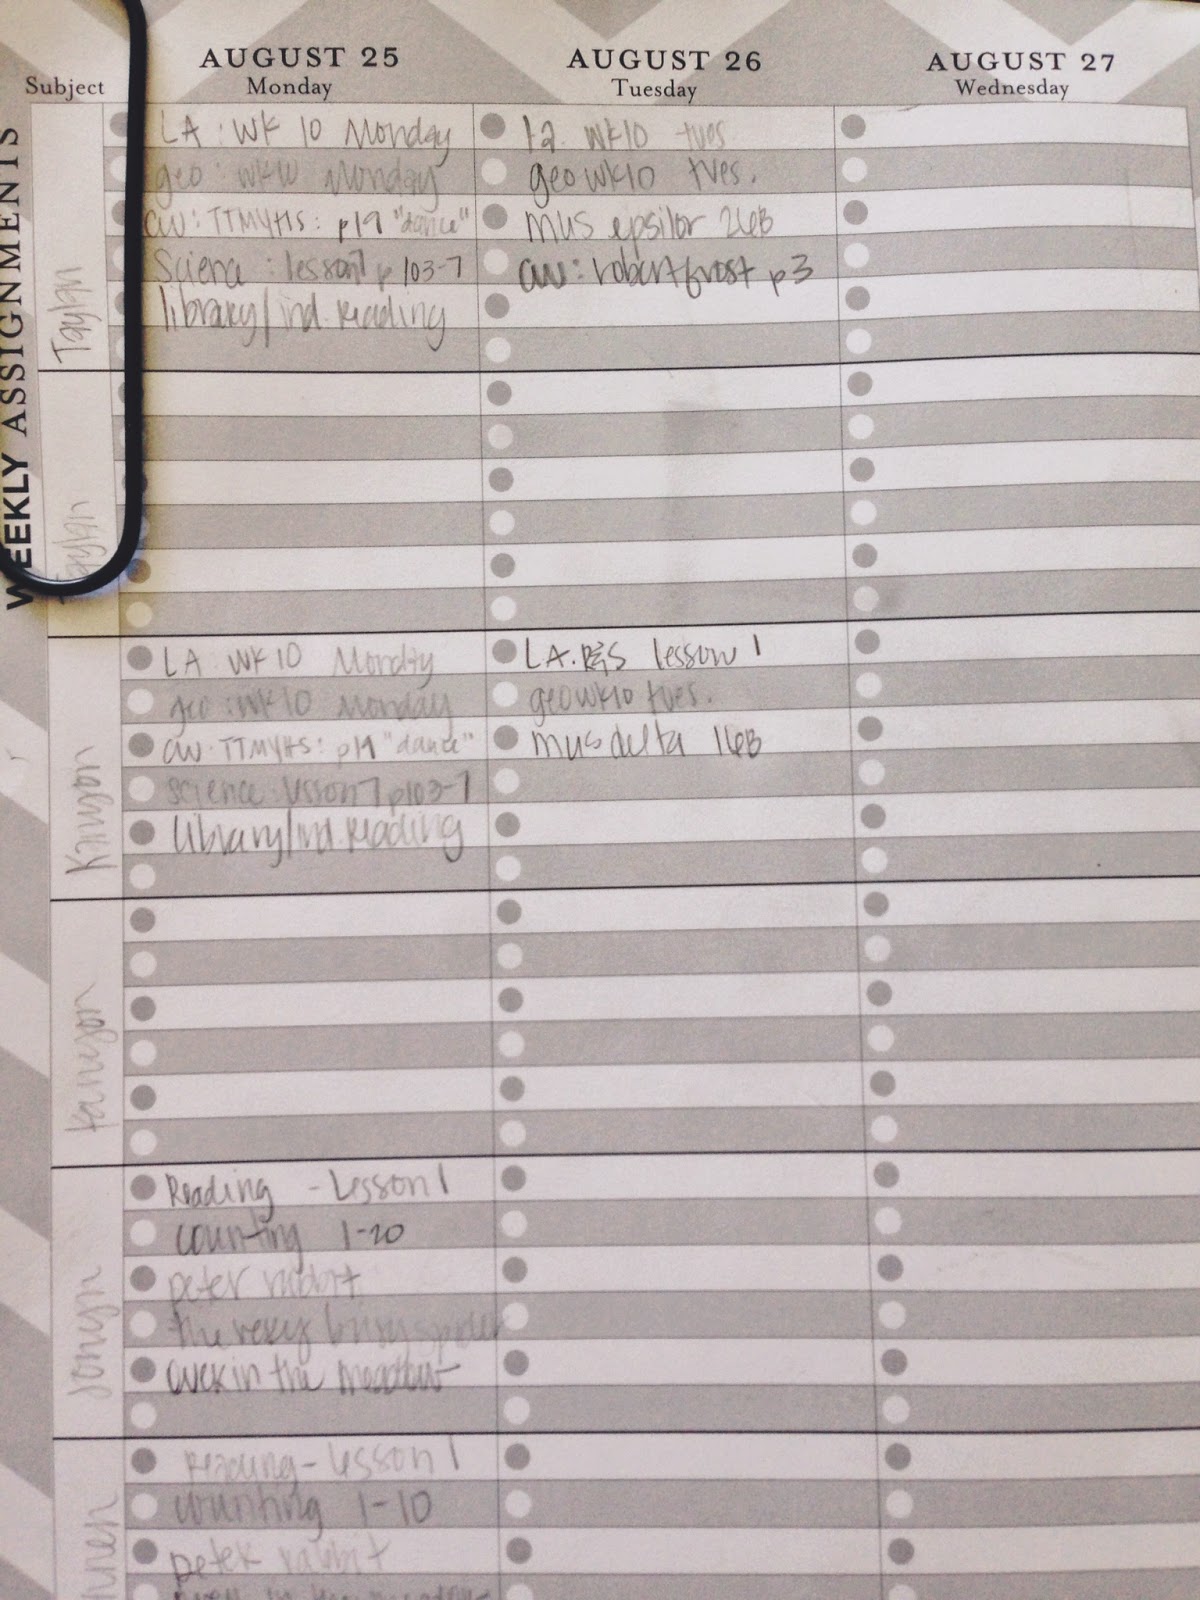 WEEKLY ASSIGNMENTS
Subject
AUGUST 25
Monday
AUGUST 26
Tuesday
AUGUST 27
Wednesday
LA: WK 10 Monday
geo: WK10 Monday
CW: TTMYHS: p19 "dance"
Science: lesson 7 p103-7
library/ind. reading
la. WK10 tues
geo WK10 tues.
mus epsilon 26B
CW: robert frost p3
LA WK 10 Monday
geo: WK10 Monday
CW. TTMYHS: p19 "dance"
science lesson 7 p103-7
library/ind. reading
LA. lesson 1
geo WK10 tues.
mus delta 16B
Reading - Lesson 1
counting 1-20
peter rabbit
the very busy spider
over in the meadow
Reading - lesson 1
counting 1-10
peter rabbit
over in the meadow